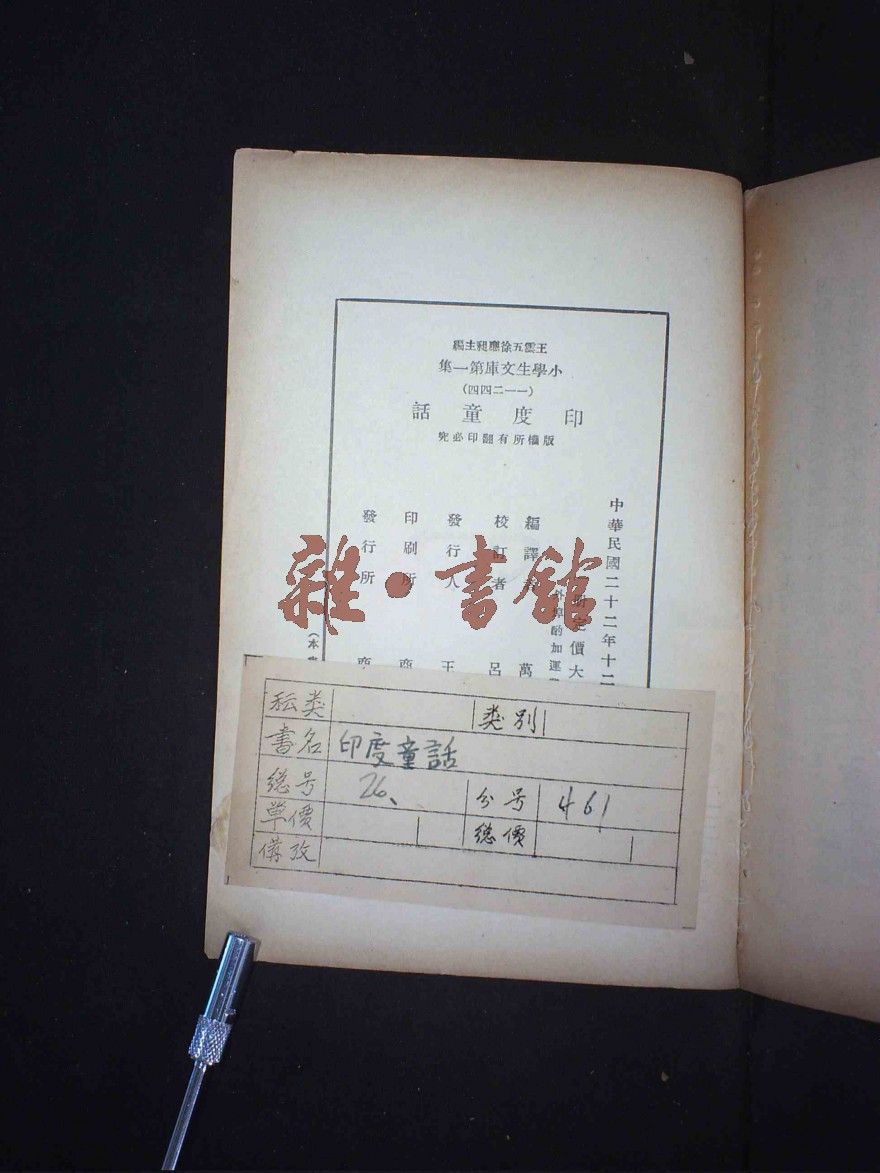 王雲五徐應昶主編
小學生文庫第一集
(一一二四四)
印度童話
版權所有翻印必究
中華民國二十二年十二
册定價大
外埠酌加運
編譯者 萬
校訂者 呂
發行人 王
印刷所 商
發行所 商
(本
雜·書館
类别
書名 印度童話
總号 26、 分号 461
單價 總價
備攷